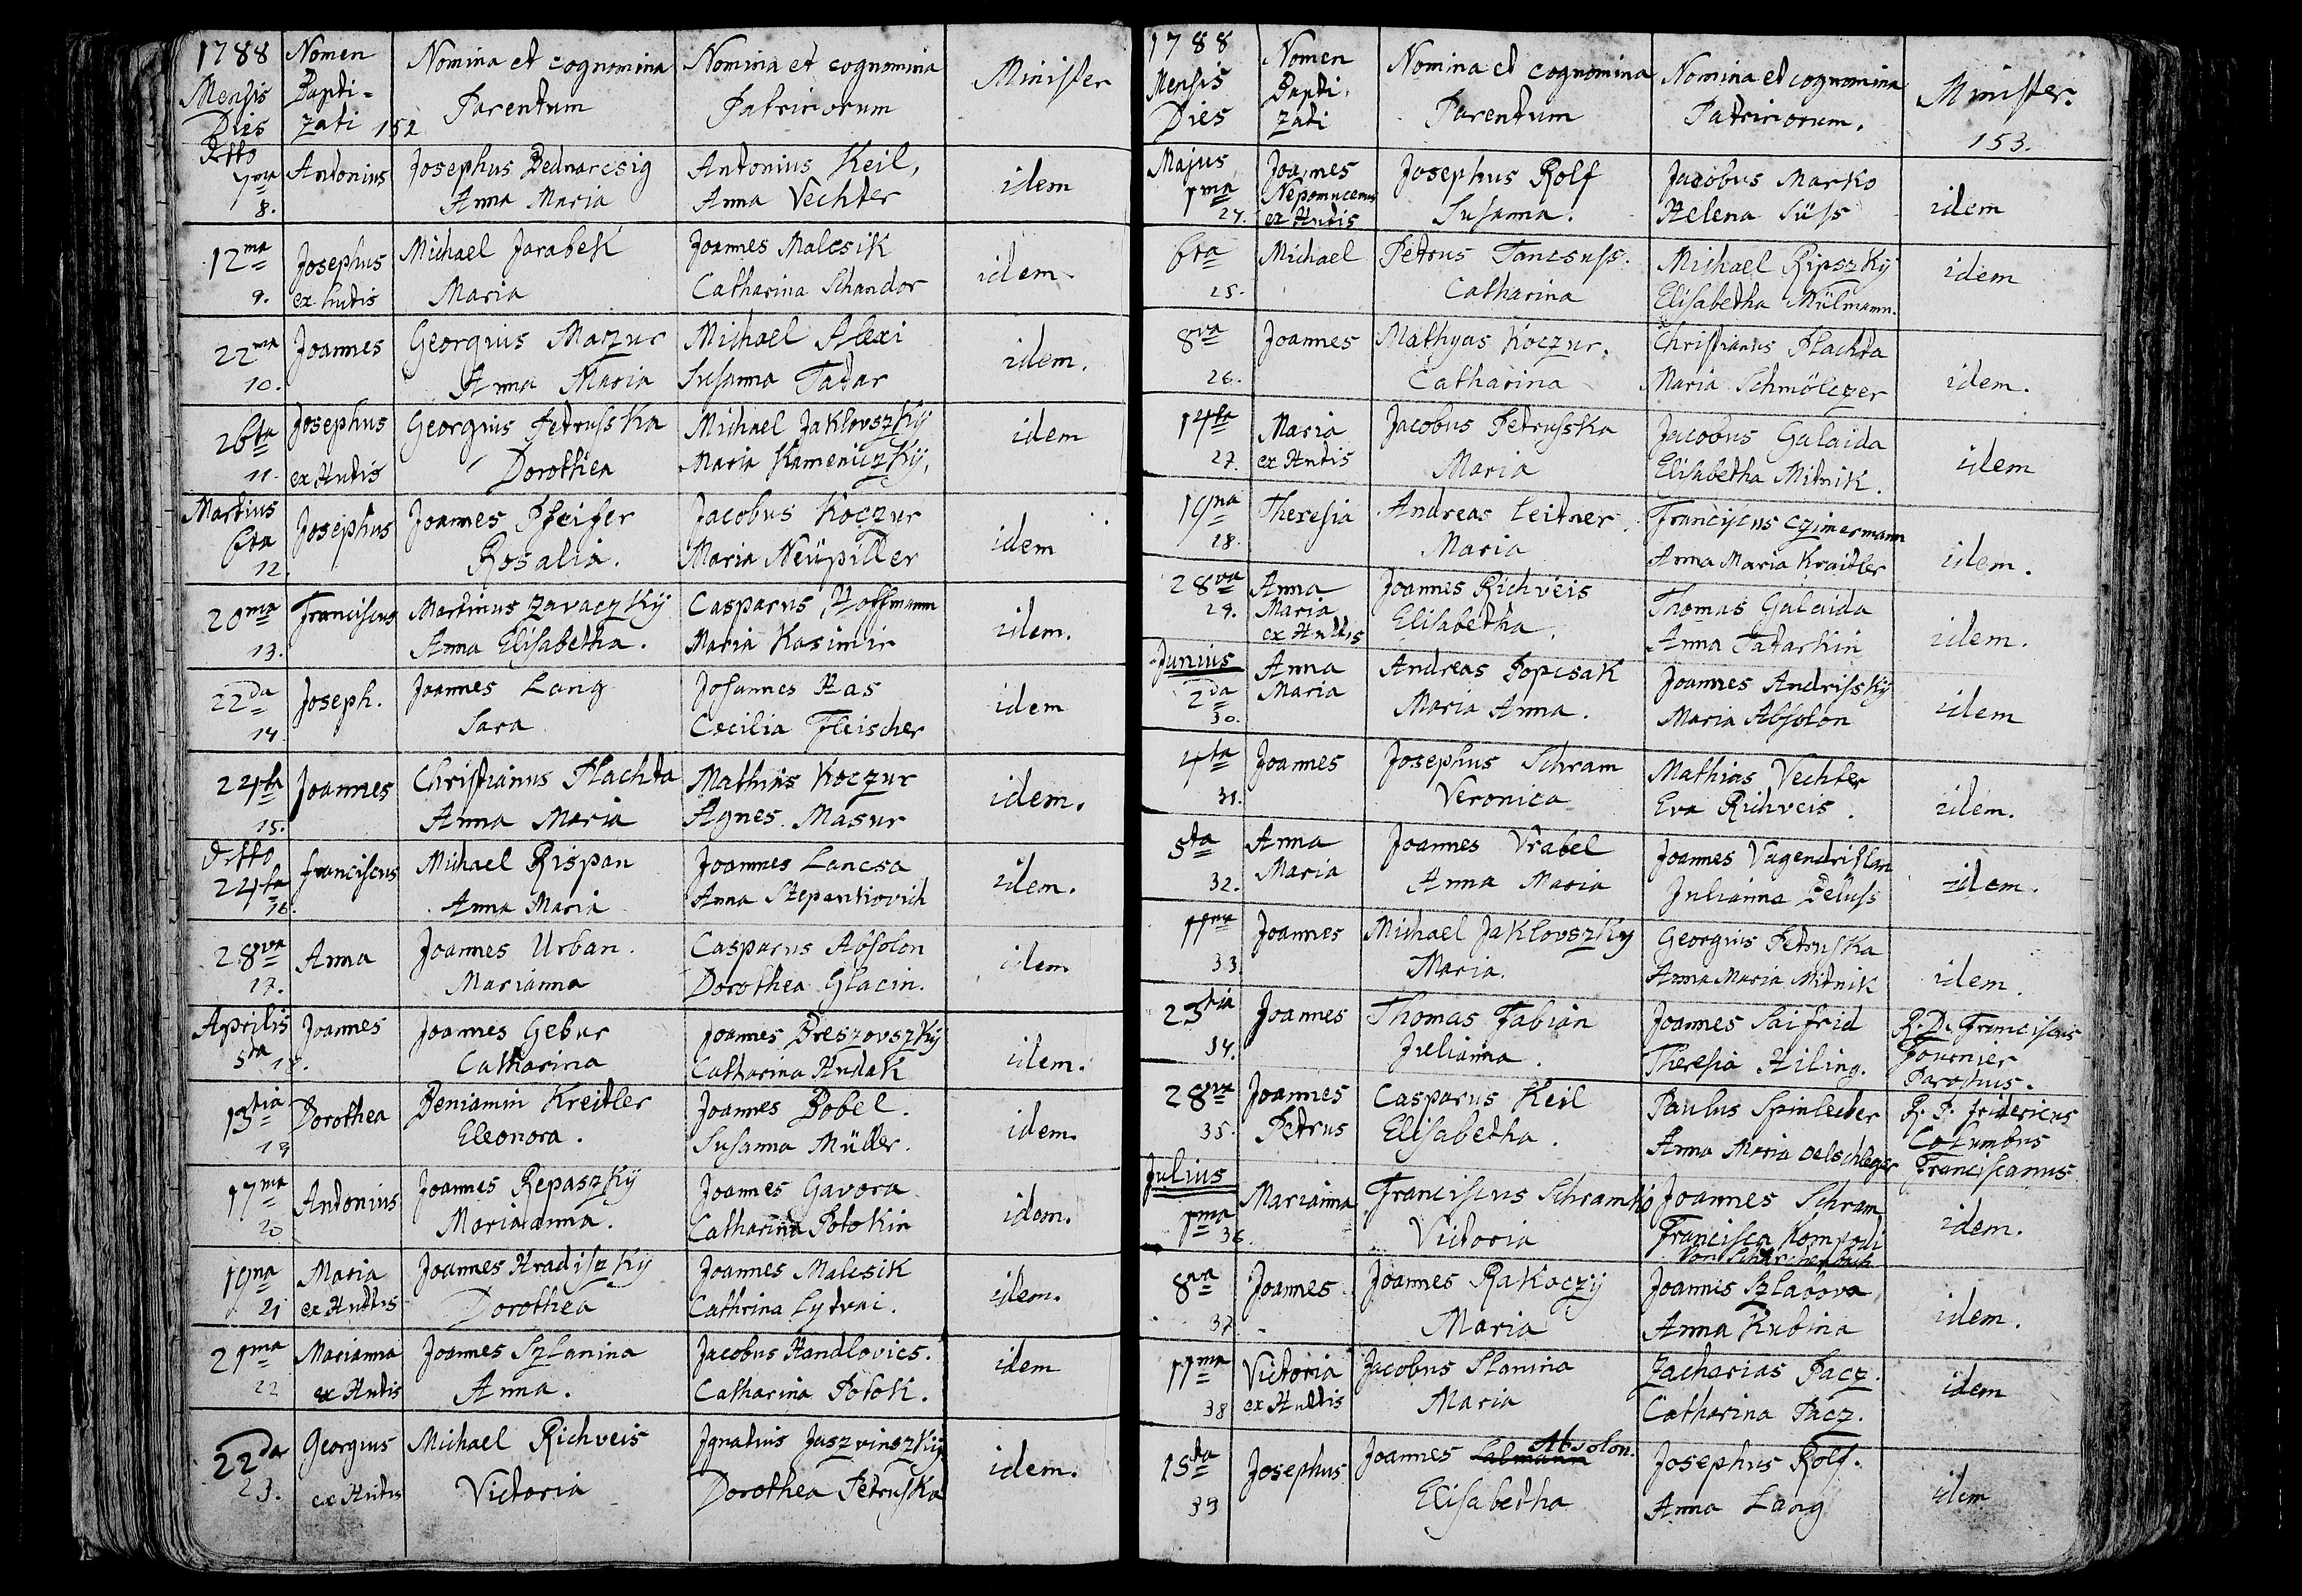 1788 Nomen Nomina et cognomina Nomina et cognomina Minister
Mensis Bapti= Parentum Patrinorum
Dies zati 152
Antonius Josephus Bednarcsig Antonius Keil, idem
7ma Anna Maria Anna Vechter
8.
12ma Josephus Michael Jarabek Joannes Malcsik idem
9. ex Hutis Maria Catharina Schandor
22ma Joannes Georgius Mazur Michael Alexi idem.
10. Anna Maria Susanna Tatar
26ta Josephus Georgius Petrusska Michael Jaklovszky idem
11. ex Hutis Dorothea Maria Kameniczky.
Martius Josephus Joannes Pfeifer Jacobus Koczur idem
6ta Rosalia. Maria Neüpiller
12.
20ma Franciscus Martinus Zavaczky Casparus Hoffmann idem.
13. Anna Elisabetha. Maria Kasimir
22da Joseph. Joannes Lang Johannes Has idem
14. Sara Cecilia Fleischer
24ta Joannes Christianus Plachta Mathias Koczur idem.
15. Anna Maria Agnes Masur
Ditto Franciscus Michael Rispan Joannes Lancsa idem.
24ta Anna Maria Anna Stepankovich
16.
28va Anna Joannes Urban. Casparus Absolon idem
17. Marianna Dorothea Glacin.
Aprilis Joannes Joannes Gebur Joannes Breszovszky idem.
5ta 18. Catharina Catharina Hudak
13tia Dorothea Beniamin Kreitler Joannes Bobel. idem.
19 Eleonora. Susanna Müller.
17ma Antonius Joannes Repaszky Joannes Gavora idem.
20 Mariaanna. Catharina Potokin
19na Maria Joannes Hradiszky Joannes Malcsik idem.
21 ex Huttis Dorothea Cathrina Lytvai.
21ma Marianna Joannes Szlanina Jacobus Handlovics. idem
22 ex Hutis Anna. Catharina Potok.
22da Georgius Michael Richveis Ignatius Jaszvinszky idem.
23. ex Hutis Victoria Dorothea Petruska
1788 Nomen Nomina et cognomina Nomina et cognomina Minister.
Mensis Bapti. Parentum Patrinorum.
Dies zati 153.
Majus Joannes Josephus Rolf Jacobus Marko idem
1ma Nepomucenus Susanna. Helena Süss
24. ex Hutis
6ta Michael Petrus Tancsuss. Michael Ripszky idem
25. Catharina Elisabetha Mülmann.
8va Joannes Mathyas Koczur. Christianus Plachta idem.
26. Catharina Maria Schmölczer
14ta Maria Jacobus Petrusska Jacobus Galaida idem
27. ex Hutis Maria Elisabetha Mitnik.
19na Theresia Andreas Leitner Franciscus Czimermann idem.
28. Maria Anna Maria Kraitler
28va Anna Joannes Richveis Thomas Galaida idem.
29. Maria Elisabetha. Anna Tatarkin
ex Huttis
Junius Anna Andreas Popcsak Joannes Andrissky idem
2da Maria Maria Anna. Maria Absolon
30.
4ta Joannes Josephus Schram Mathias Vechter idem.
31. Veronica Eva Richveis.
5ta Anna Joannes Vrabel Joannes idem.
32. Maria Anna Maria Julianna Beluss
11ma Joannes Michael Jaklovszky Georgius Petruska idem.
33 Maria. Anna Maria Mitnik
23tia Joannes Thomas Fabian Joannes Saifrid R. D. Franciscus
34. Julianna. Theresia Hiling. Fournier
Parochus.
28va Joannes Casparus Keil Paulus Spinleiter R. P. Fridericus
35. Petrus Elisabetha. Anna Maria Oelschleger Columbus
Franciscanus
Julius Marianna Franciscus Schramko Joannes Schram idem.
1ma Victoria Francisca Kompodi
36. Von
8va Joannes Joannes Rakoczy Joannes Szlabova idem.
37. Maria Anna Kubina
11ma Victoria Jacobus Slanina Zacharias Pacz. idem
38 ex Huttis Maria Catharina Pacz.
15ta Josephus Joannes Lalmann Absolon. Josephus Rolf. idem
39 Elisabetha Anna Lang